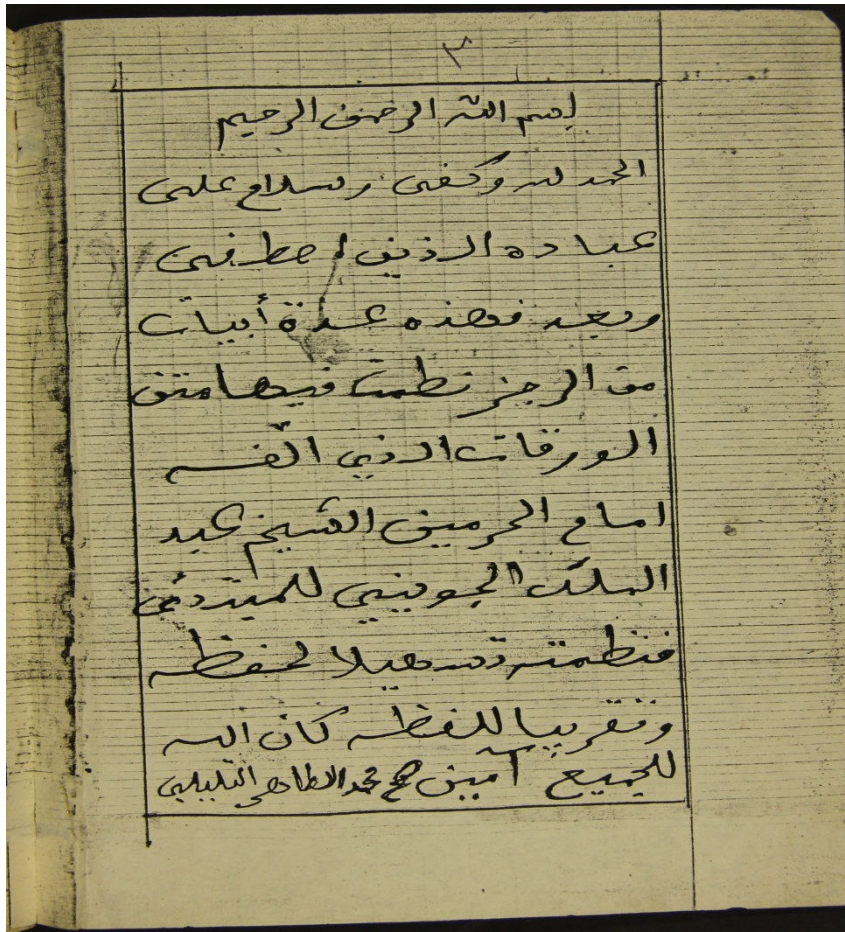 ٣
بسم الله الرحمن الرحيم
الحمد لله وكفى وسلام على
عباده الذين اصطفى
وبعد فهذه عدة أبيات
من الرجز نظمت فيها متن
الورقات الذي ألفه
امام الحرمين الشيخ عبد
الملك الجويني للمبتدئ
فنظمته تسهيلا لحفظه
وتقريبا للفظه كان الله
للجميع آمين محمد الطاهر التليلي